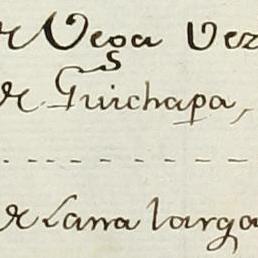 de Vega Vez
de Guichapa,
de Lana larga